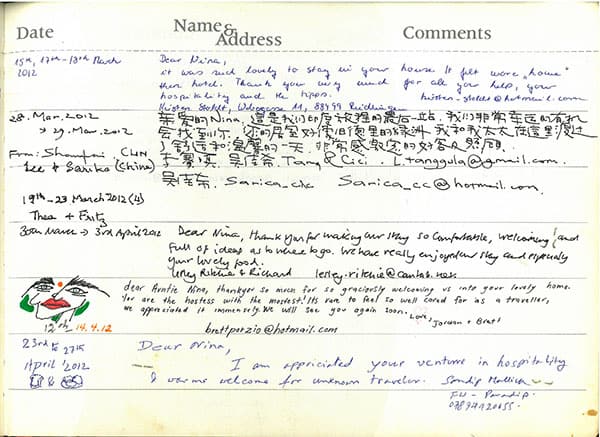 Date Name & Address Comments
15th, 17th - 18th March 2012
Dear Nina,
it was such lovely to stay in your house. It felt more "home"
then hotel. Thank you very much for all your help, your
hospitality and the tipps.
Kirsten 88499 Riedlingen kirsten-stohdt@hotmail.com
28. Mar. 2012
→ 29. Mar. 2012
From: Shanghai CHN
Lee & Sanika (China)
親愛的 Nina, 這是我们印度旅程的最后一站, 我们非常幸运的有机
会找到你, 我和我太太在這里渡过
了舒适和温馨的一天. 非常感谢您的好客及照顾.
Tang & Cici. l.tanggula@gmail.com
Sanica_cc Sanica_cc@hotmail.com
19th - 23 March 2012 (4)
Thea + Fritz
30th March → 3rd April 2012
Dear Nina, Thank you for making our stay so comfortable, welcoming and
full of ideas as to where to go. We have really enjoyed our stay and especially
your lovely food.
Lesley Ritchie & Richard lesley.ritchie@cantab.net
dear Auntie Nina, thankyou so much for so graciously welcoming us into your lovely home.
You are the hostess with the mostest! Its rare to feel so well cared for as a traveller,
we appreciated it immensely. We will see you again soon. Love, Jordan + Brett
12th 14.4.12
brettperzio@hotmail.com
23rd to 27th
April 2012
Dear Nina,
I am appriciated your venture in hospitality
& warms welcome for unknown traveler. Sandip Mallick
Paradip.